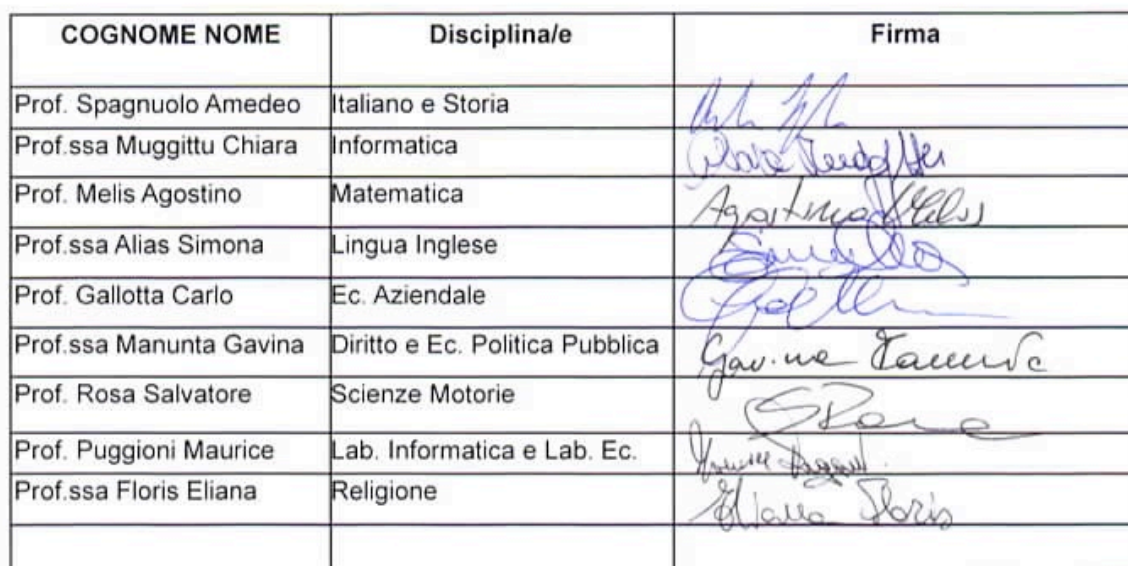 COGNOME NOME Disciplina/e Firma
Prof. Spagnuolo Amedeo Italiano e Storia
Prof.ssa Muggittu Chiara Informatica
Prof. Melis Agostino Matematica Agostino Melis
Prof.ssa Alias Simona Lingua Inglese
Prof. Gallotta Carlo Ec. Aziendale
Prof.ssa Manunta Gavina Diritto e Ec. Politica Pubblica Gavina Manunta
Prof. Rosa Salvatore Scienze Motorie
Prof. Puggioni Maurice Lab. Informatica e Lab. Ec.
Prof.ssa Floris Eliana Religione Eliana Floris